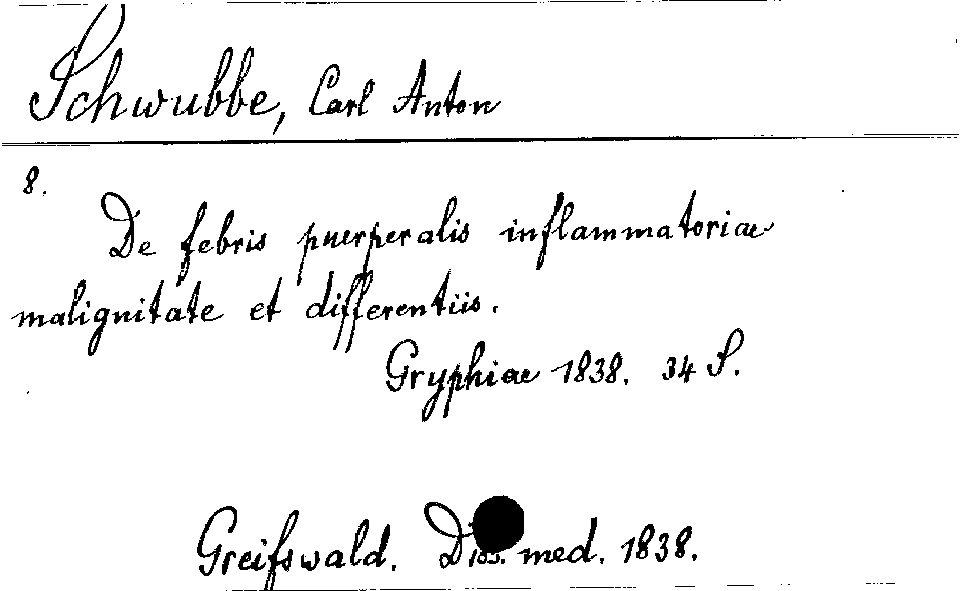 Schwubbe, Carl Anton
8.
De febris puerperalis inflammatoriae
malignitate et differentiis.
Gryphiae 1838. 34 S.
Greifswald. Diss. med. 1838.